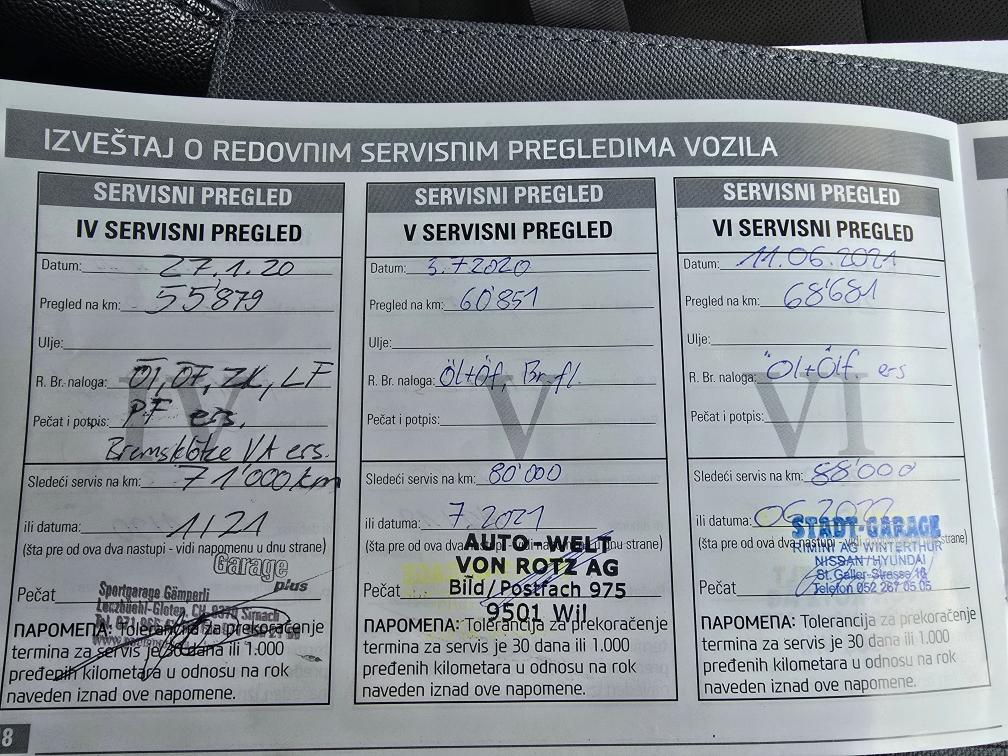 IZVEŠTAJ O REDOVNIM SERVISNIM PREGLEDIMA VOZILA
SERVISNI PREGLED
IV SERVISNI PREGLED
Datum: 27.1.20
Pregled na km: 55'879
Ulje:
R. Br. naloga: Öl, ÖF, ZK, LF
Pečat i potpis: PF ers.
Bremsklötze VA ers.
IV
Sledeći servis na km: 71'000 km
ili datuma: 1/21
(šta pre od ova dva nastupi - vidi napomenu u dnu strane)
Garage plus
Pečat
Sportgarage Gämperli
CH, 8370 Sirnach
NAPOMENA: Tolerancija za prekoračenje
termina za servis je 30 dana ili 1.000
pređenih kilometara u odnosu na rok
naveden iznad ove napomene.
SERVISNI PREGLED
V SERVISNI PREGLED
Datum: 3.7.2020
Pregled na km: 60'851
Ulje:
R. Br. naloga: Öl+Öf, Br.fl.
Pečat i potpis:
V
Sledeći servis na km: 80'000
ili datuma: 7.2021
(šta pre od ova dva nastupi - vidi napomenu u dnu strane)
AUTO-WELT
VON ROTZ AG
Bild / Postfach 975
9501 Wil
Pečat
NAPOMENA: Tolerancija za prekoračenje
termina za servis je 30 dana ili 1.000
pređenih kilometara u odnosu na rok
naveden iznad ove napomene.
SERVISNI PREGLED
VI SERVISNI PREGLED
Datum: 11.06.2021
Pregled na km: 68'681
Ulje:
R. Br. naloga: Öl+Ölf. ers
Pečat i potpis:
VI
Sledeći servis na km: 88'000
ili datuma: 06.2022
(šta pre od ova dva nastupi - vidi napomenu u dnu strane)
STADT-GARAGE
RIMINI AG WINTERTHUR
NISSAN / HYUNDAI
St. Galler-Strasse
Telefon 052 267 05 05
Pečat
NAPOMENA: Tolerancija za prekoračenje
termina za servis je 30 dana ili 1.000
pređenih kilometara u odnosu na rok
naveden iznad ove napomene.
8